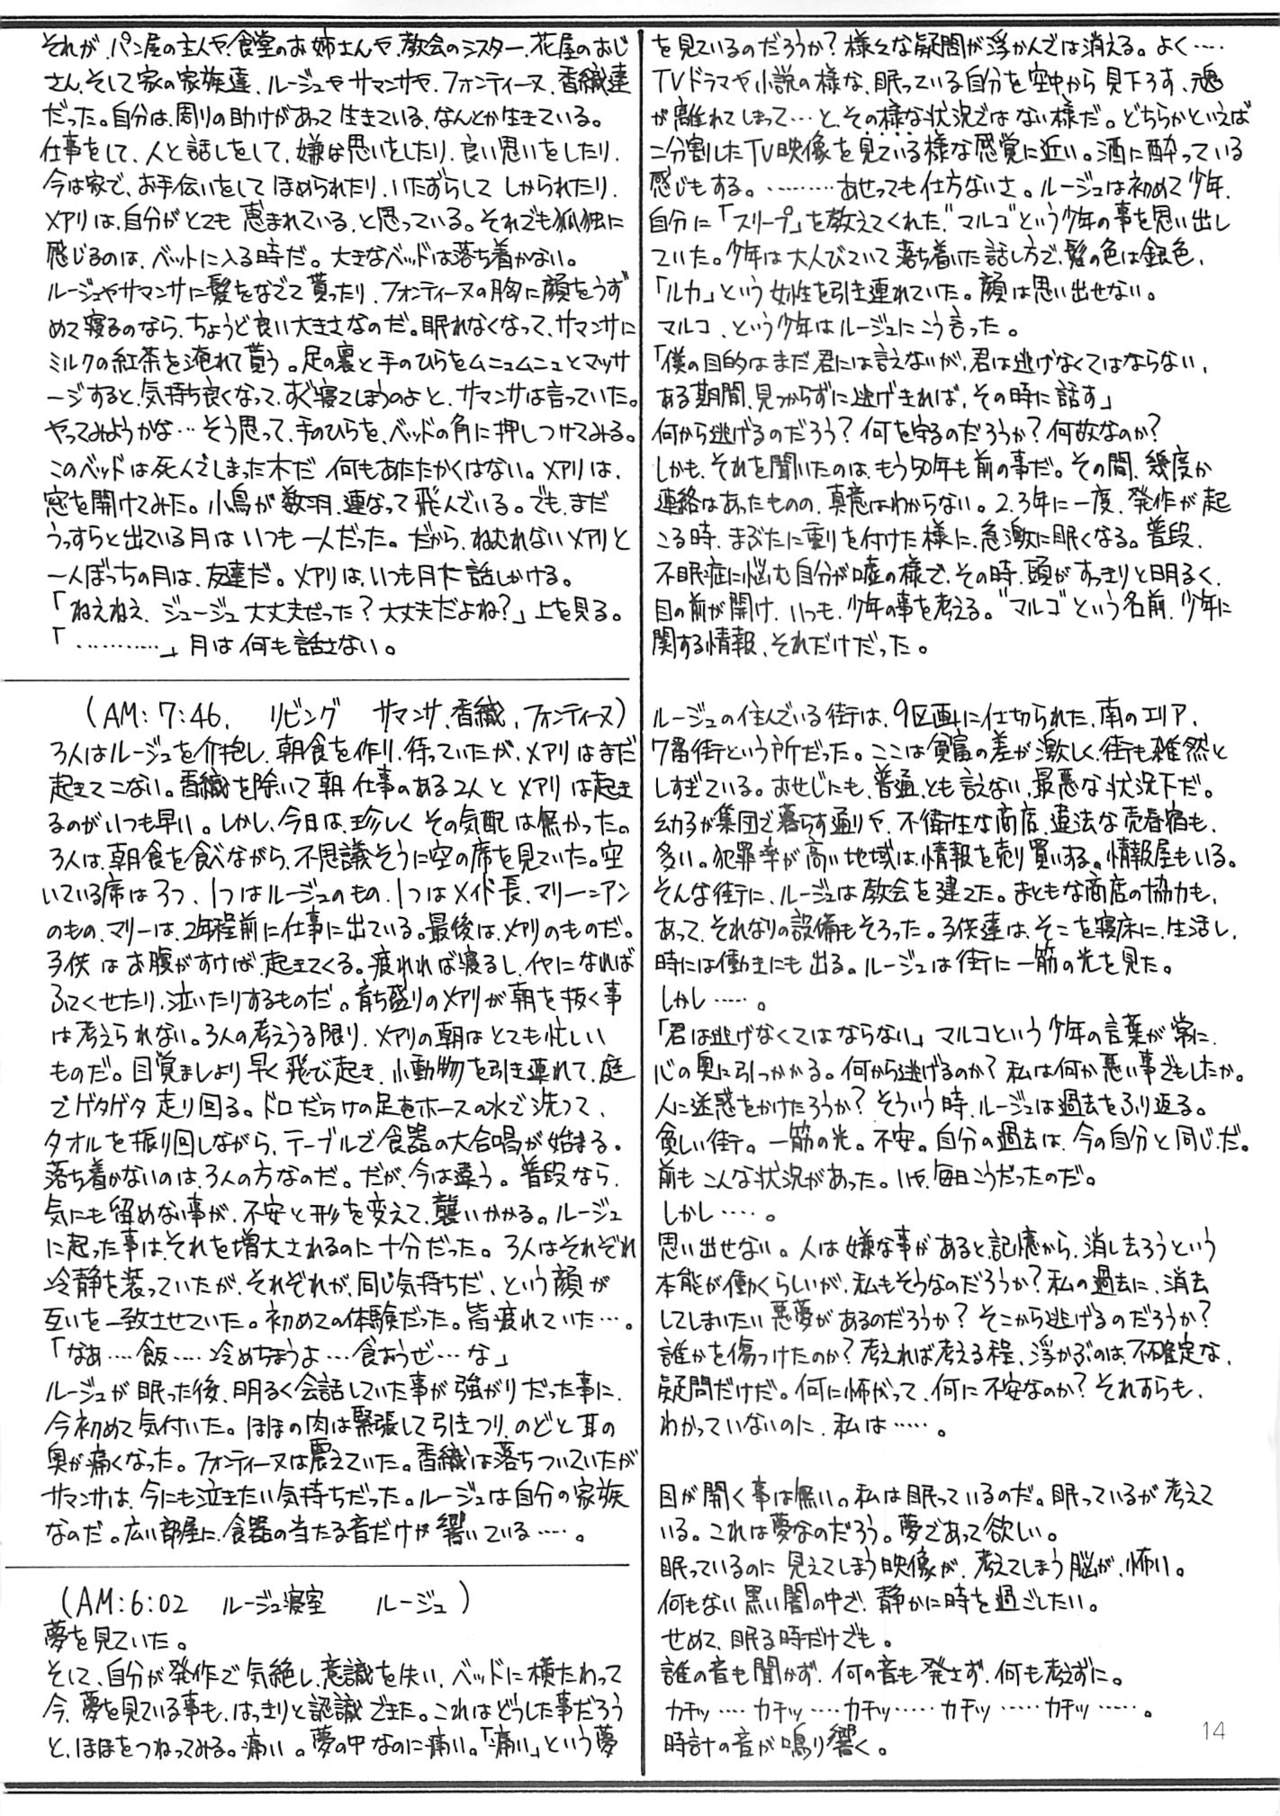 それが、パン屋の主人や、食堂のお姉さんや、教会のシスター、花屋のおじ
さん、そして家の家族達、ルージュやサマンサや、フォンティーヌ、香織達
だった。自分は、周りの助けがあって生きている、なんとか生きている。
仕事をして、人と話しをして、嫌な思いをしたり、良い思いをしたり、
今は家で、お手伝いをしてほめられたり、いたずらしてしかられたり、
メアリは、自分がとても恵まれている、と思っている。それでも孤独に
感じるのは、ベットに入る時だ。大きなベッドは落ち着かない。
ルージュやサマンサに髪をなでて貰ったり、フォンティーヌの胸に顔をうず
めて寝るのなら、ちょうど良い大きさなのだ。眠れなくなって、サマンサに
ミルクの紅茶を淹れて貰う。足の裏と手のひらをムニュムニュとマッサ
ージすると、気持ち良くなって、すぐ寝てしまうのよと、サマンサは言っていた。
やってみようかな…そう思って、手のひらを、ベッドの角に押しつけてみる。
このベッドは死んでしまった木だ 何もあたたかくはない。メアリは、
窓を開けてみた。小鳥が数羽、連なって飛んでいる。でも、まだ
うっすらと出ている月はいつも一人だった。だから、ねむれないメアリと
一人ぼっちの月は、友達だ。メアリは、いつも月に話しかける。
「ねえねえ、ジュージュ大丈夫だった？大丈夫だよね？」上を見る。
「…………」月は何も話さない。
(AM:7:46, リビング サマンサ、香織、フォンティーヌ)
3人はルージュを介抱し、朝食を作り、待っていたが、メアリはまだ
起きてこない。香織を除いて朝仕事のある2人とメアリは起き
るのがいつも早い。しかし、今日は、珍しくその気配は無かった。
3人は、朝食を食べながら、不思議そうに空の席を見ていた。空
いている席は3つ、1つはルージュのもの、1つはメイド長、マリー＝アン
のもの、マリーは、2年程前に仕事に出ている。最後は、メアリのものだ。
子供はお腹がすけば、起きてくる。疲れれば寝るし、イヤになれば
ふてくせたり、泣いたりするものだ。育ち盛りのメアリが朝を抜く事
は考えられない。3人の考えうる限り、メアリの朝はとても忙しい
ものだ。目覚ましより早く飛び起き、小動物を引き連れて、庭
でゲタゲタ走り回る。ドロだらけの足をホースの水で洗って、
タオルを振り回しながら、テーブルで食器の大合唱が始まる。
落ち着かないのは、3人の方なのだ。だが、今は違う。普段なら、
気にも留めない事が、不安と形を変えて、襲いかかる。ルージュ
に起った事は、それを増大されるのに十分だった。3人はそれぞれ
冷静を装っていたが、それぞれが、同じ気持ちだ、という顔が
互いを一致させていた。初めての体験だった。皆疲れていた…。
「なあ‥‥飯‥‥冷めちまうよ…食おうぜ…な」
ルージュが眠った後、明るく会話していた事が強がりだった事に、
今初めて気付いた。ほほの肉は緊張して引きつり、のどと耳の
奥が痛くなった。フォンティーヌは震えていた。香織は落ちついていたが
サマンサは、今にも泣きたい気持ちだった。ルージュは自分の家族
なのだ。広い部屋に、食器の当たる音だけが響いている‥‥。
(AM:6:02 ルージュ寝室 ルージュ)
夢を見ていた。
そして、自分が発作で気絶し、意識を失い、ベッドに横たわって
今、夢を見ている事も、はっきりと認識できた。これはどうした事だろう
と、ほほをつねってみる。痛い。夢の中なのに痛い。「痛い」という夢
を見ているのだろうか？様々な疑問が浮かんでは消える。よく‥‥
TVドラマや小説の様な、眠っている自分を空中から見下ろす、魂
が離れてしまって…と、その様な状況ではない様だ。どちらかといえば
二分割したTV映像を見ている様な感覚に近い。酒に酔っている
感じもする。………あせっても仕方ないさ。ルージュは初めて少年、
自分に「スリープ」を教えてくれた“マルコ”という少年の事を思い出し
ていた。少年は大人びていて落ち着いた話し方で、髪の色は銀色、
「ルカ」という女性を引き連れていた。顔は思い出せない。
マルコ、という少年はルージュにこう言った。
「僕の目的はまだ君には言えないが、君は逃げなくてはならない、
ある期間、見つからずに逃げきれば、その時に話す」
何から逃げるのだろう？何を守るのだろうか？何故なのか？
しかも、それを聞いたのは、もう50年も前の事だ。その間、幾度か
連絡はあったものの、真意はわからない。2,3年に一度、発作が起
こる時、まぶたに重りを付けた様に、急激に眠くなる。普段、
不眠症に悩む自分が嘘の様で、その時、頭がすっきりと明るく、
目の前が開け、いつも、少年の事を考える。“マルコ”という名前、少年に
関する情報、それだけだった。
ルージュの住んでいる街は、9区画に仕切られた、南のエリア、
7番街という所だった。ここは貧富の差が激しく、街も雑然と
しすぎている。おせじにも、普通、とも言えない、最悪な状況下だ。
幼子が集団で暮らす通りや、不衛生な商店、違法な売春宿も、
多い。犯罪率が高い地域は、情報を売り買いする。情報屋もいる。
そんな街に、ルージュは教会を建てた。まともな商店の協力も、
あって、それなりの設備もそろった。子供達は、そこを寝床に、生活し、
時には働きにも出る。ルージュは街に一筋の光を見た。
しかし‥‥。
「君は逃げなくてはならない」マルコという少年の言葉が常に、
心の奥に引っかかる。何から逃げるのか？私は何か悪い事でもしたか。
人に迷惑をかけたろうか？そういう時、ルージュは過去をふり返る。
貧しい街。一筋の光。不安。自分の過去は、今の自分と同じだ。
前もこんな状況があった。いや、毎日こうだったのだ。
しかし‥‥。
思い出せない。人は嫌な事があると記憶から、消し去ろうという
本能が働くらしいが、私もそうなのだろうか？私の過去に、消去
してしまいたい悪夢があるのだろうか？そこから逃げるのだろうか？
誰かを傷つけたのか？考えれば考える程、浮かぶのは、不確定な、
疑問だけだ。何に怖がって、何に不安なのか？それすらも、
わかっていないのに、私は‥‥。
目が開く事は無い。私は眠っているのだ。眠っているが考えて
いる。これは夢なのだろう。夢であって欲しい。
眠っているのに見えてしまう映像が、考えてしまう脳が、怖い。
何もない黒い闇の中で、静かに時を過ごしたい。
せめて、眠る時だけでも。
誰の音も聞かず、何の音も発さず、何も考えずに。
カチッ‥‥カチッ‥‥カチッ‥‥カチッ‥‥カチッ‥‥。
時計の音が鳴り響く。
14